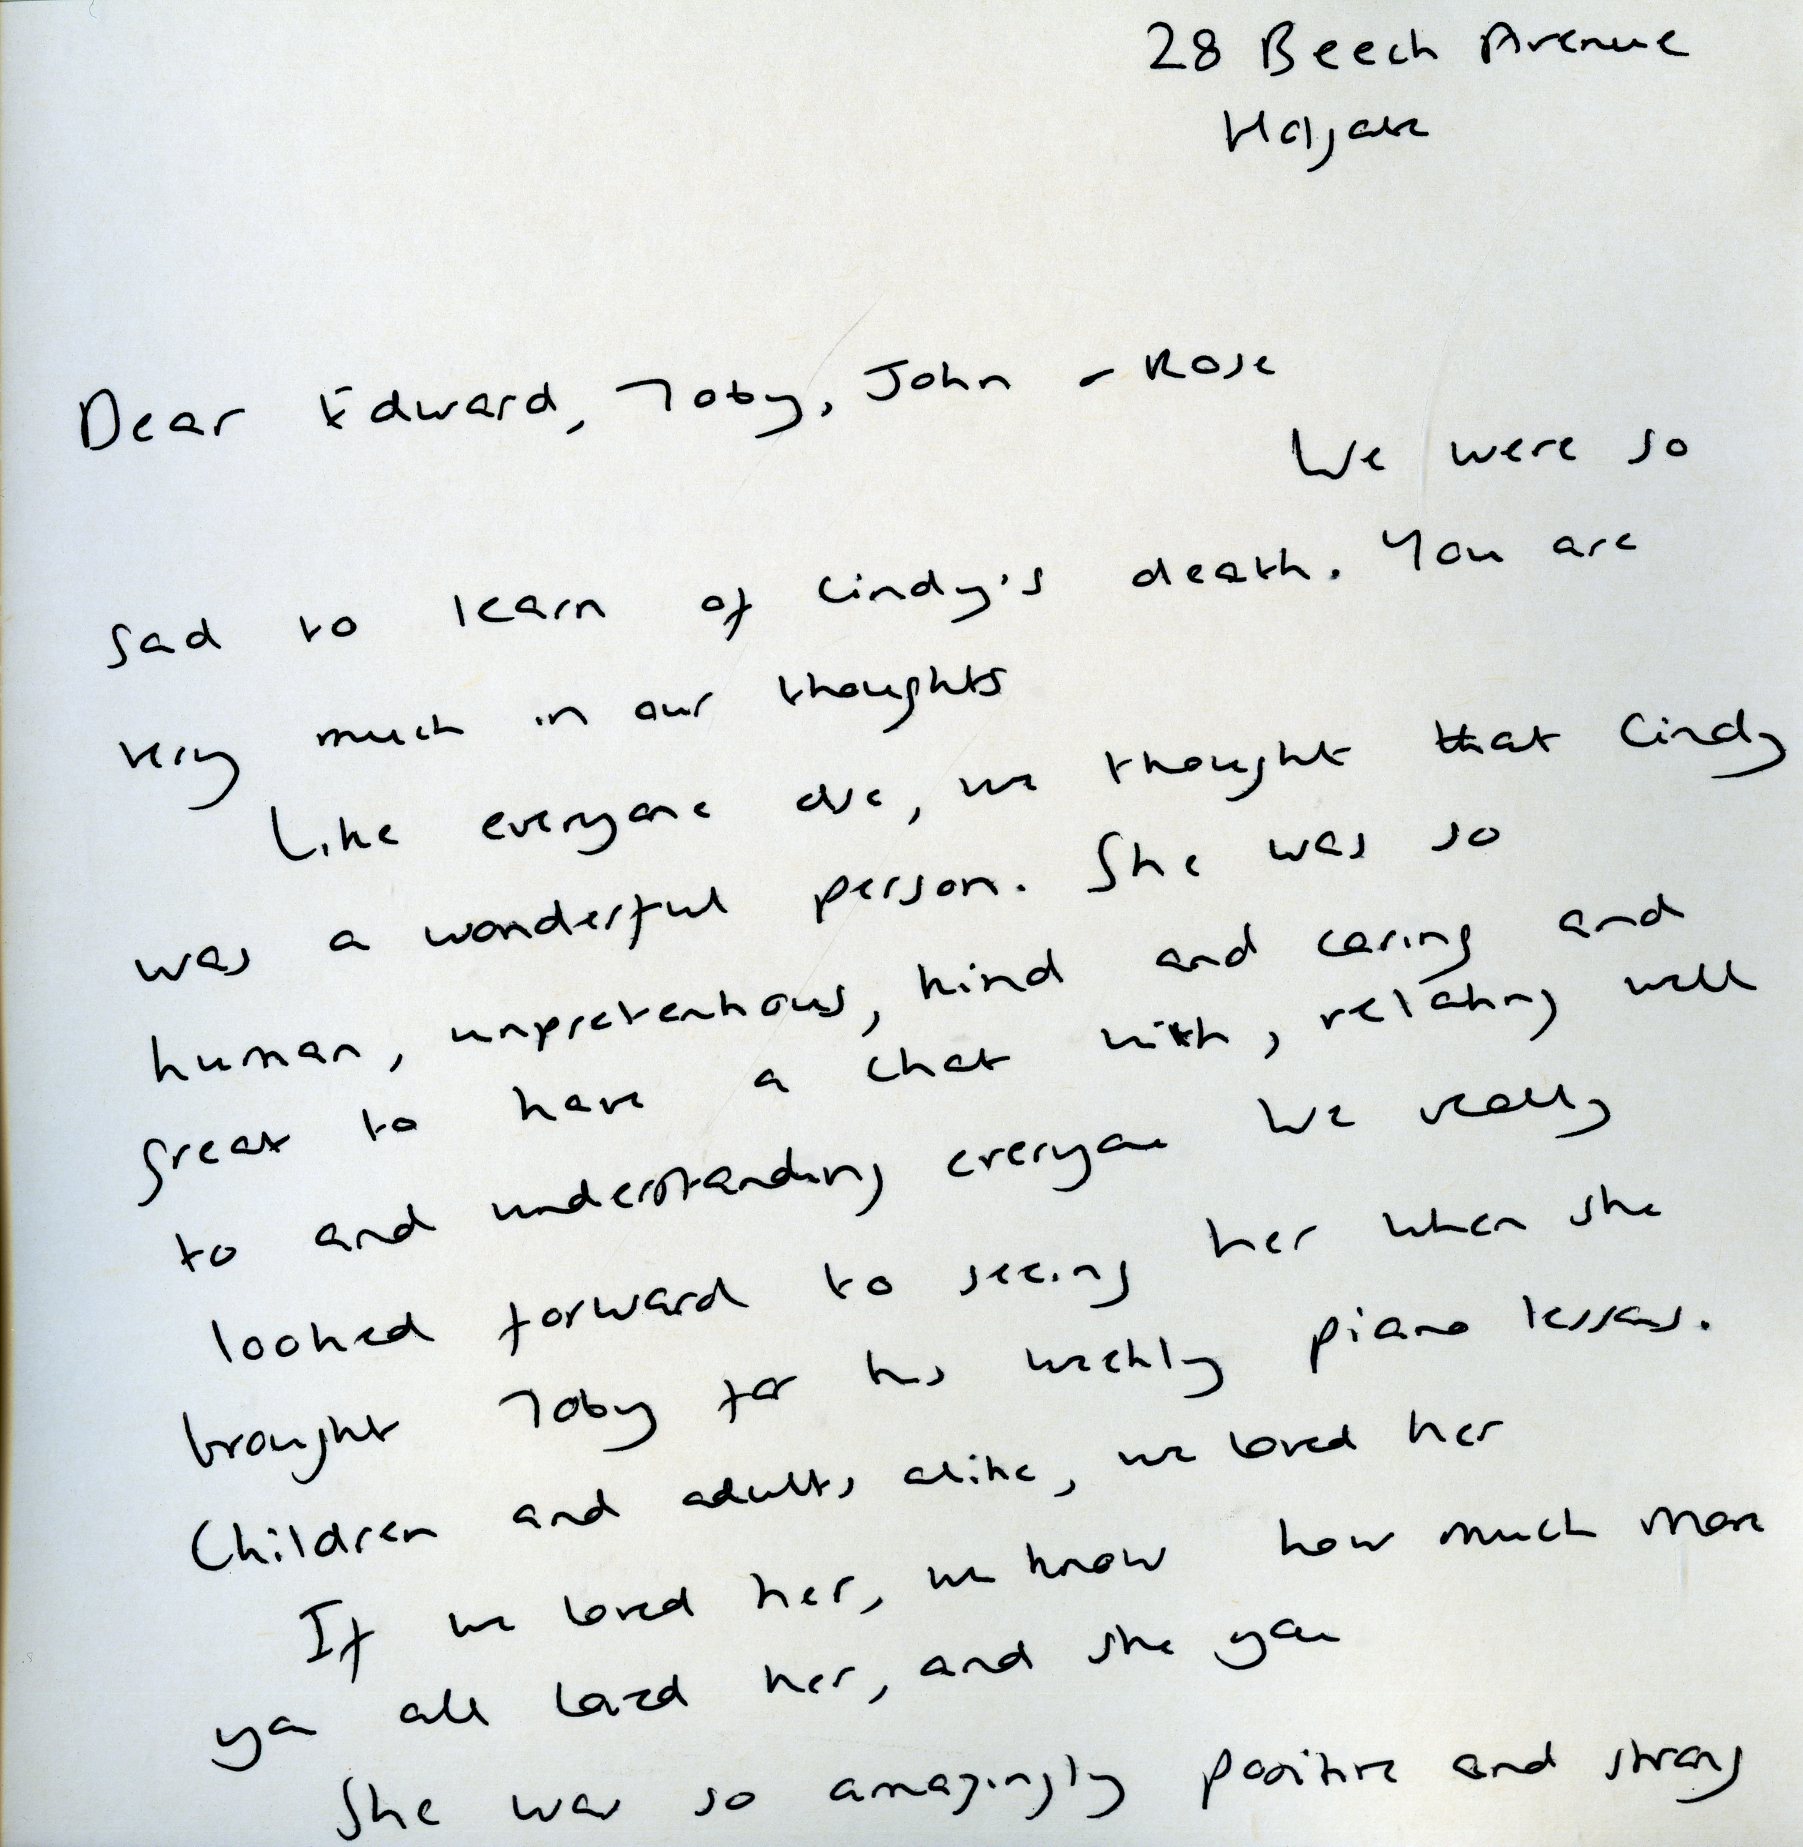 28 Beech Avenue
Dear Edward, Toby, John & Rose
We were so
sad to learn of Cindy's death. You are
very much in our thoughts
Like everyone else, we thought that Cindy
was a wonderful person. She was so
human, unpretentious, kind and caring and
great to have a chat with, relating well
to and understanding everyone We really
looked forward to seeing her when she
brought Toby for his weekly piano lessons.
Children and adults alike, we loved her
If we loved her, we know how much more
you all loved her, and she you
She was so amazingly positive and strong